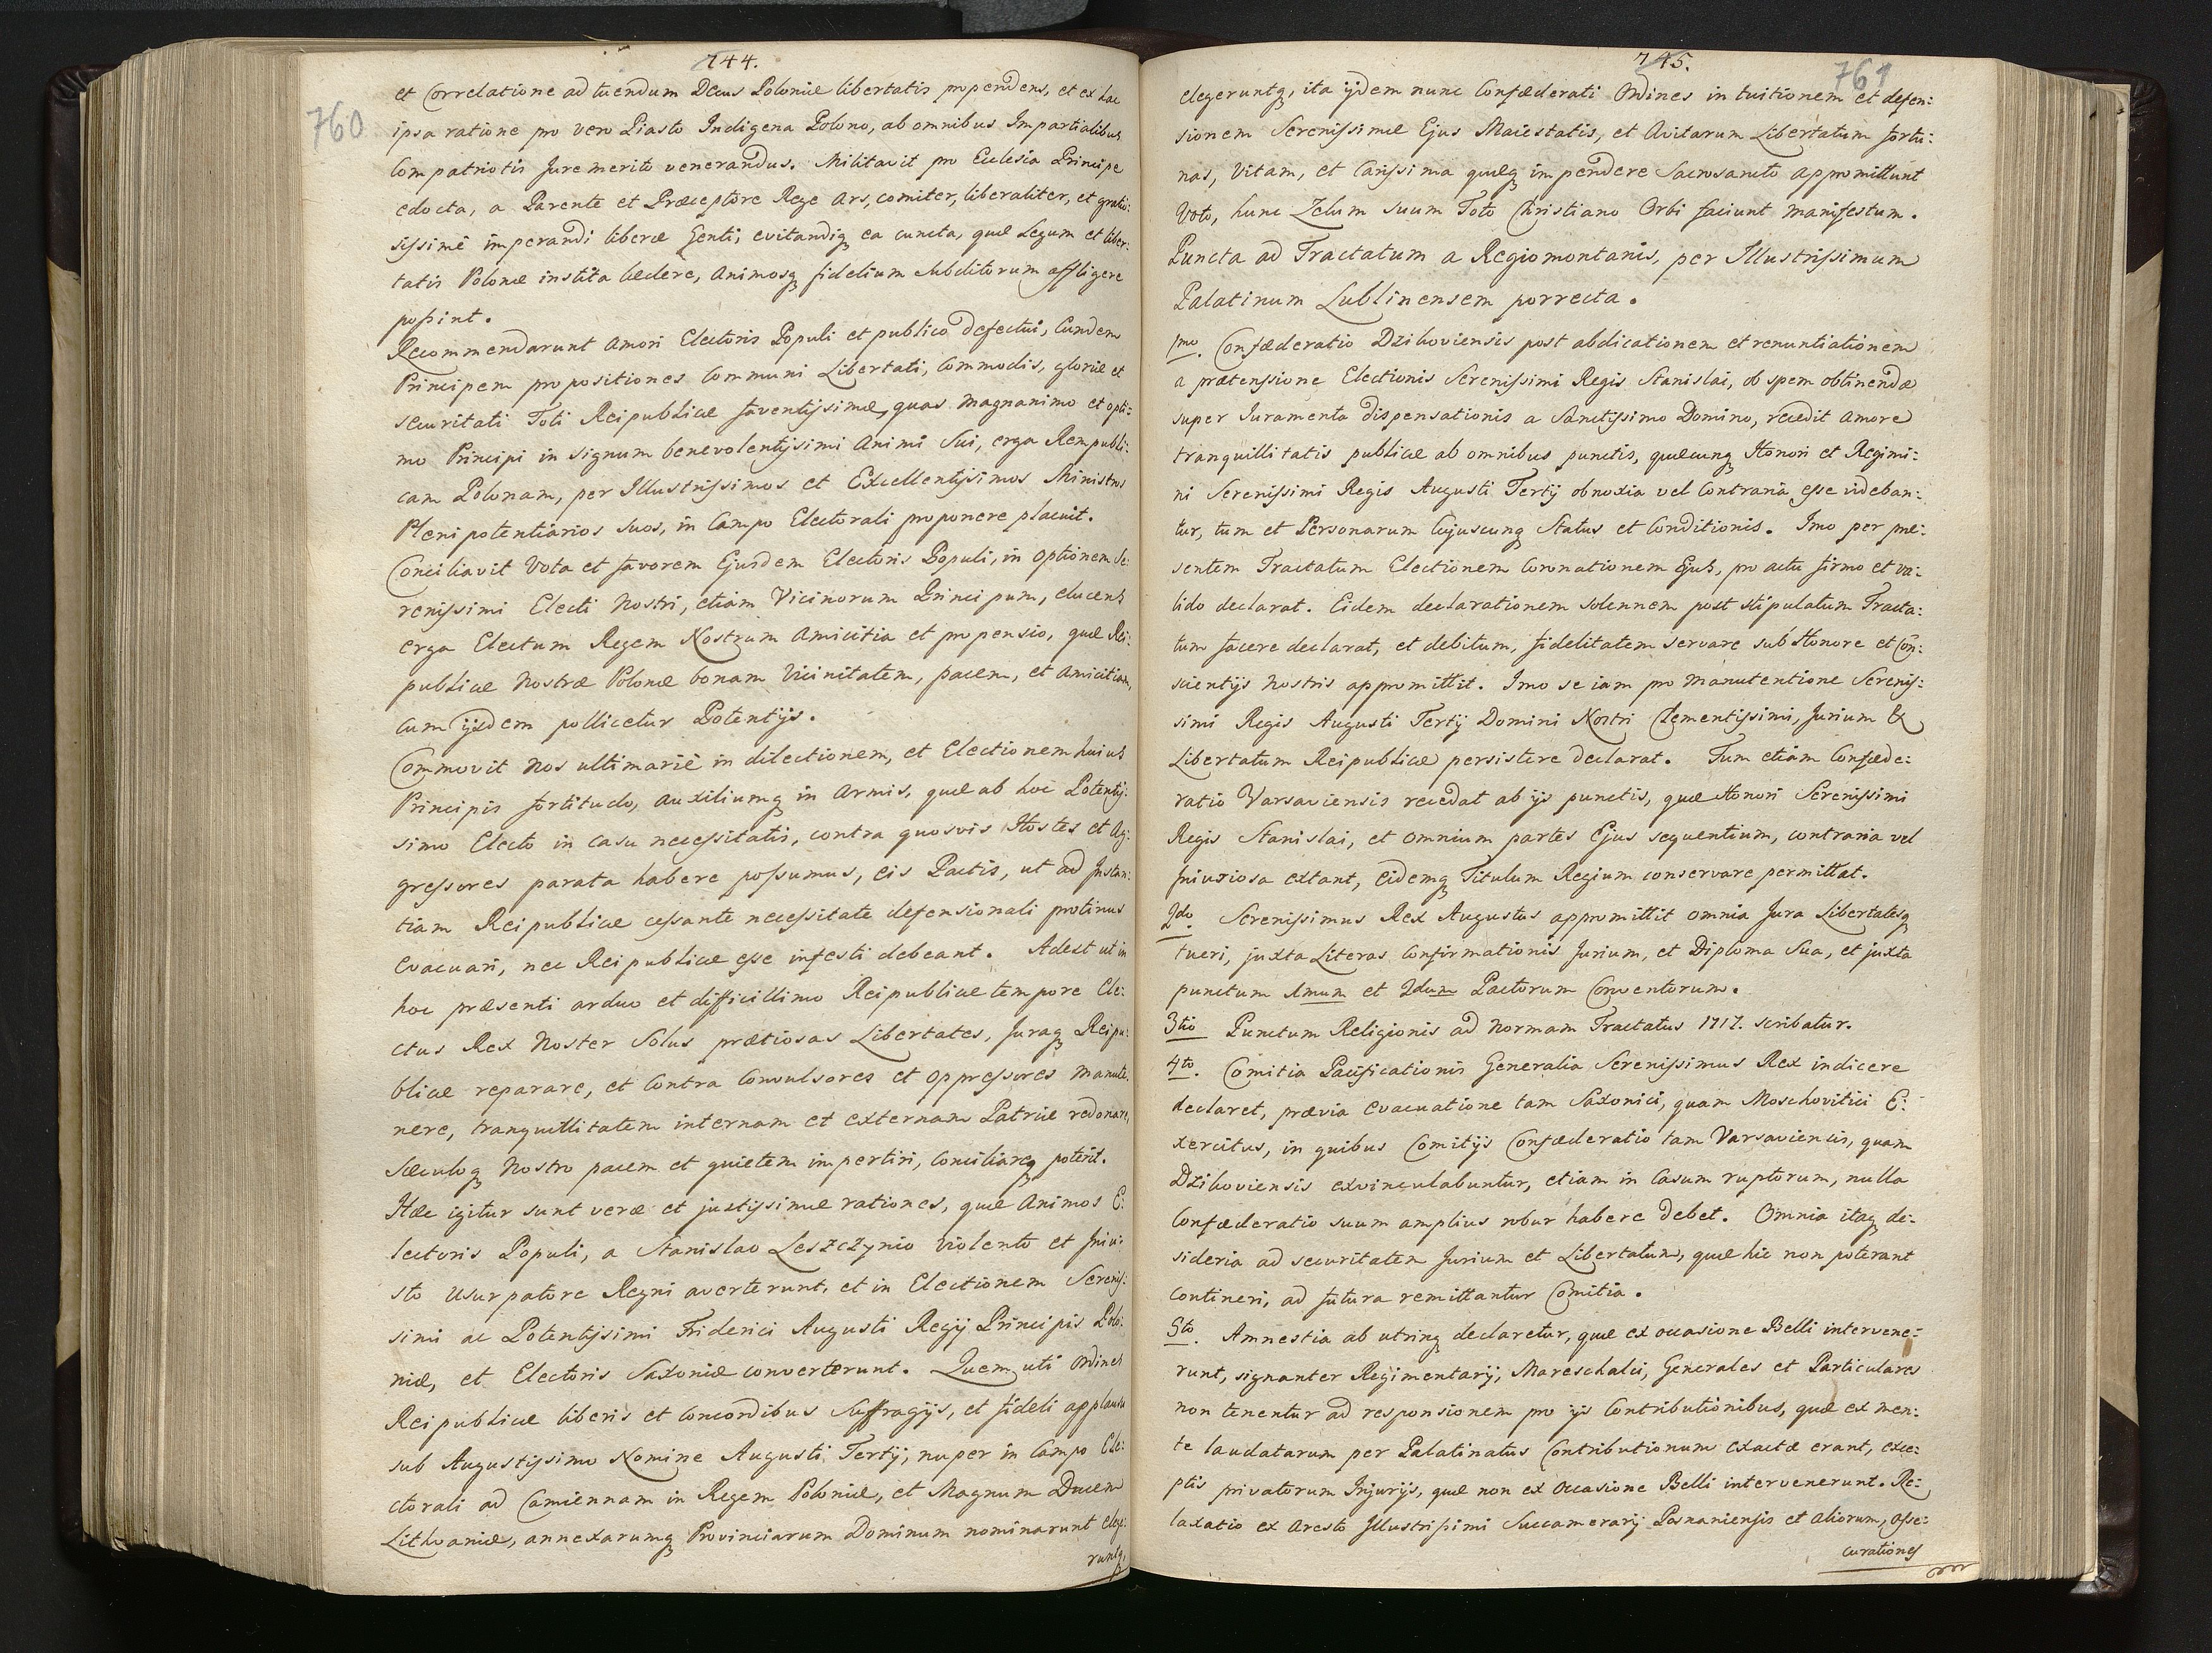 744.
760
et Correlatione ad tuendum Decus Poloniæ libertatis propendens, et ex hac
ipsa ratione pro vero Piasto Indigena Polono, ab omnibus Impartialibus
Compatriotis Jure merito venerandus. Militavit pro Ecclesia Principe
edocta, a Parente et Præceptore Rege Ars, comiter, liberaliter, et gratio:
sissimè imperandi liberæ Genti, evitandiq ea cuncta, quæ Legum et liber:
tatis Polonæ instita lædere, Animosq fidelium subditorum affligere
possint.
Recommendarunt Amori Electoris Populi et publico defectui, Eundem
Principem propositiones Communi Libertati, Commodis, gloriæ et
securitati Toti Reipublicæ faventissimæ, quas Magnanimo et opti:
mo Principi in signum benevolentissimi Animi Sui, erga Rempubli:
cam Polonam, per Illustrissimos et Excellentissimos Ministros
Plenipotentiarios Suos, in Campo Electorali proponere placuit.
Conciliavit Vota et favorem Ejusdem Electoris Populi, in optionem Se:
renissimi Electi Nostri, etiam Vicinorum Principum, elucens
erga Electum Regem Nostrum Amicitia et propensio, quæ Rei:
publicæ Nostræ Polonæ bonam Vicinitatem, pacem, et Amicitiam,
cum ijsdem pollicetur Potentijs.
Commovit Nos ultimariè in dilectionem, et Electionem huius
Principis fortitudo, Auxiliumq in Armis, quæ ab hoc Potentis:
simo Electo in casu necessitatis, contra quosvis Hostes et Ag:
gressores parata habere possumus, eis Pactis, ut ad Instan:
tiam Reipublicæ cessante necessitate defensionali protinus
Evacuari, nec Reipublicæ esse infesti debeant. Adest ut in
hoc præsenti arduo et difficillimo Reipublicæ tempore Ele:
ctus Rex Noster Solus prætiosas Libertates, Juraq Reipu:
blicæ reparare, et Contra Convulsores et oppressores Manute:
nere, tranquillitatem internam et externam Patriæ redonare,
Sæculoq Nostro pacem et quietem impertiri, Conciliareq poterit.
Hæc igitur sunt veræ et justissimæ rationes, quæ Animos E:
lectoris Populi, a Stanislao Leszczynio violento et Iniu:
sto Usurpatore Regni averterunt, et in Electionem Serenis:
simi ac Potentissimi Friderici Augusti Regij Principis Polo:
niæ, et Electoris Saxoniæ converterunt. Quem uti Ordines
Reipublicæ liberis et Concordibus Suffragijs, et fideli applausu
sub Augustissimo Nomine Augusti Tertij, nuper in Campo Ele:
ctorali ad Camiennam in Regem Poloniæ, et Magnum Ducem
Lithvaniæ, annexarumq Provinciarum Dominum nominarunt eleg:
runtq,
745.
761
elegeruntq, ita ijdem nunc Confæderati Ordines in tuitionem et defen:
sionem Serenissimæ Ejus Maiestatis, et Avitarum Libertatum fortu:
nas, Vitam, et Carissima quæq impendere Sacrosancto appromittunt
Voto, hunc Zelum suum Toto Christiano Orbi faciunt manifestum.
Puncta ad Tractatum a Regiomontanis, per Illustrissimum
Palatinum Lublinensem porrecta.
1mo. Confæderatio Dzikoviensis post abdicationem et renuntiationem
a prætensione Electionis Serenissimi Regis Stanislai, ob spem obtinendæ
super Iuramenta dispensationis a Sanctissimo Domino, recedit amore
tranquillitatis publicæ ab omnibus punctis, quæcunq Honori et Regimi:
ni Serenissimi Regis Augusti Tertij obnoxia vel Contraria esse videban:
tur, tum et Personarum Cujuscunq Status et Conditionis. Imo per præ:
sentem Tractatum Electionem Coronationem Ejus, pro actu firmo et va:
lido declarat. Eidem declarationem solennem post stipulatum Tracta:
tum facere declarat, et debitum, fidelitatem servare sub Honore et Con:
scientijs Nostris appromittit. Imo se iam pro Manutentione Serenis:
simi Regis Augusti Tertij Domini Nostri Clementissimi, Jurium &
Libertatum Reipublicæ persistere declarat. Tum etiam Confæde:
ratio Varsaviensis recedat ab ijs punctis, quæ Honori Serenissimi
Regis Stanislai, et omnium partes Ejus sequentium, contraria vel
Iniuriosa extant, Eidemq Titulum Regium conservare permittat.
2do. Serenissimus Rex Augustus appromittit omnia Jura Libertatesq
tueri, juxta Literas Confirmationis Jurium, et Diploma Sua, et juxta
punctum 1mum et 2dum Pactorum Conventorum.
3tio Punctum Religionis ad Normam Tractatus 1717. scribatur.
4to. Comitia Pacificationis Generalia Serenissimus Rex indicere
declaret, prævia Evacuatione tam Saxonici, quam Moschovitici E:
xercitus, in quibus Comitijs Confæderatio tam Varsaviencis, quam
Dzikoviensis exvinculabuntur, etiam in Casum ruptorum, nulla
Confæderatio suum amplius robur habere debet. Omnia itaq de:
sideria ad securitatem Jurium et Libertatum, quæ hic non poterant
contineri, ad futura remittantur Comitia.
5to. Amnestia ab utrinq declaretur, quæ ex occasione Belli intervene:
runt, signanter Regimentarij, Mareschalci, Generales et Particulares
non tenentur ad responsionem pro ijs Contributionibus, quæ ex men:
te laudatarum per Palatinatus Contributionum exactæ erant, exce:
ptis privatorum Injurijs, quæ non ex occasione Belli intervenerunt. Re:
laxatio ex Aresto Illustrissimi Succamerarij Posnaniensis et aliorum, asse:
curationes